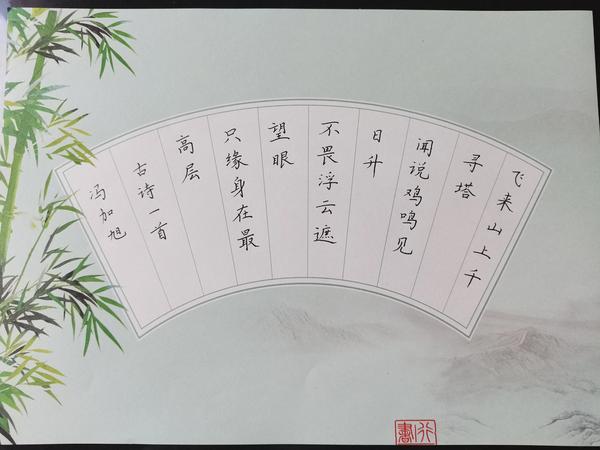 飞来山上千
寻塔
闻说鸡鸣见
日升
不畏浮云遮
望眼
只缘身在最
高层
古诗一首
冯加旭